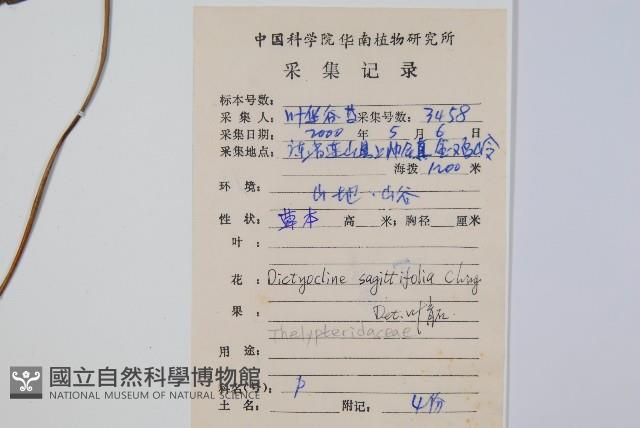 中国科学院华南植物研究所
采集记录
标本号数:
采集人: 叶华谷等 采集号数: 3458
采集日期: 2000 年 5 月 6 日
采集地点: 连山县上帅
海拨 1200 米
环境: 山地·山谷
性状: 草本 高 米; 胸径 厘米
叶:
花: Dictyocline sagittifolia Ching
果: Det. 叶
Thelypteridaceae
用途:
國立自然科學博物館
NATIONAL MUSEUM OF NATURAL SCIENCE
科名(号): p
土名: 附记: 4份